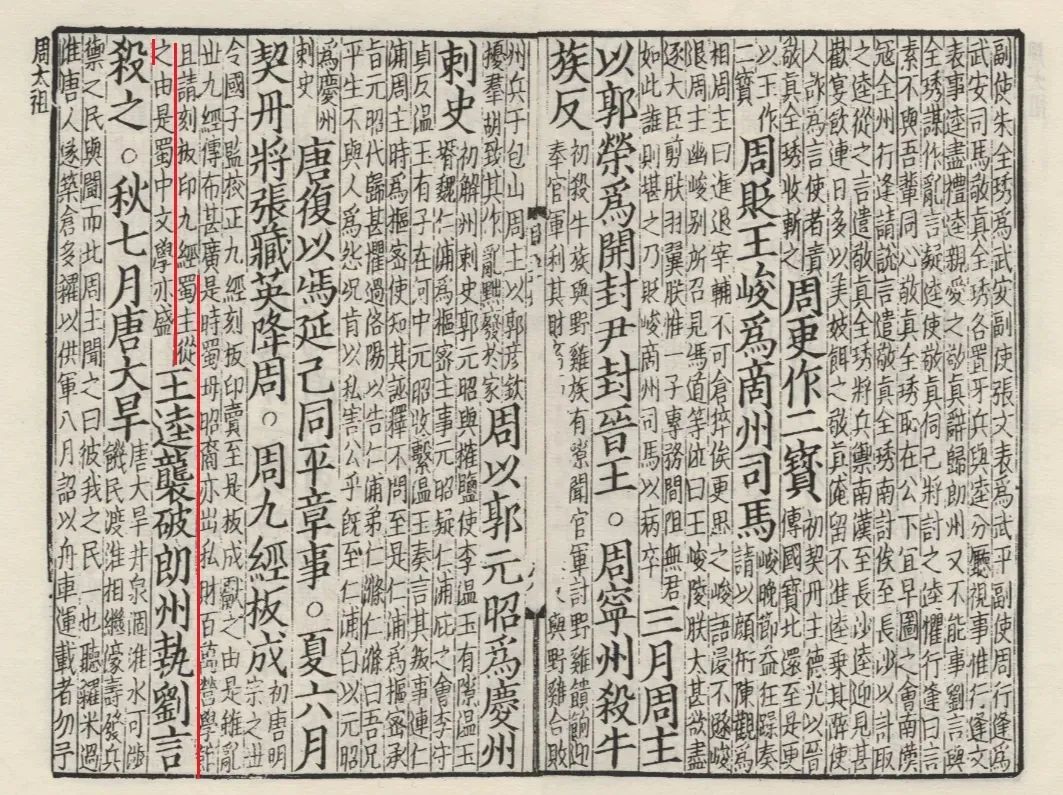 副使朱全琇爲武安副使張文表爲武平副使周行逢爲
武安司馬敬真全琇各置牙兵與逵分廳視事惟行逢文
表事逵盡禮逵親愛之敬真辭歸朗州又不能事劉言與
全琇謀作亂言疑逵使敬真伺己將討之逵懼行逢曰言
素不與吾輩同心敬真全琇恥在公下宜早圖之會南漢
寇全州行逢請說言遣敬真全琇南討俟至長沙以計取
之逵從之言遣敬真全琇將兵禦南漢至長沙逵迎見甚
歡宴飲連日多以美妓餌之敬真淹留不進逵乘其醉使
人詐爲言使者責
敬真全琇收斬之
周更作二寶
初契丹主德光以晉
傳國寶北還至是更
以玉作
二寶
周貶王峻爲商州司馬
峻晚節益狂躁奏
請以顏衎陳觀爲
相周主曰進退宰輔不可倉猝俟更思之峻語浸不遜
限周主幽峻别所召見馮道等泣曰王峻陵朕太甚欲盡
逐大臣剪朕羽翼朕惟一子專務間阻無君
如此誰則堪之乃貶峻商州司馬以病卒
三月周主
以郭榮爲開封尹封晉王○周寧州殺牛
族反
初殺牛族與野雞族有隙聞官軍討野雞饋餉迎
奉官軍利其財與野雞合敗
州兵于包山周主以郭彥欽
擾羣胡致其作亂黜發於家
周以郭元昭爲慶州
刺史
初解州刺史郭元昭與榷鹽使李溫玉有隙溫玉
壻魏仁浦爲樞密主事元昭疑仁浦庇之會李守
貞反溫玉有子在河中元昭收繫溫玉奏言其叛事連仁
浦周主時爲樞密使知其誣釋不問至是仁浦爲樞密承
旨元昭代歸甚懼過洛陽以告仁浦弟仁滌仁滌曰吾兄
平生不與人爲怨况肯以私害公乎既至仁浦白以元昭
爲慶州
刺史
唐復以馮延己同平章事○夏六月
契丹將張藏英降周○周九經板成
初唐明
宗之世
令國子監校正九經刻板印賣至是板成獻之由是雖亂
世九經傳布甚廣是時蜀毋昭裔亦出私財百萬營學館
且請刻板印九經蜀主從
之由是蜀中文學亦盛
王逵襲破朗州執劉言
殺之○秋七月唐大旱
唐大旱井泉涸淮水可涉
饑民渡淮相繼濠壽發兵
禦之民與鬭而北周主聞之曰彼我之民一也聽糴米過
淮唐人遂築倉多糴以供軍八月詔以舟車運載者勿予
周太祖